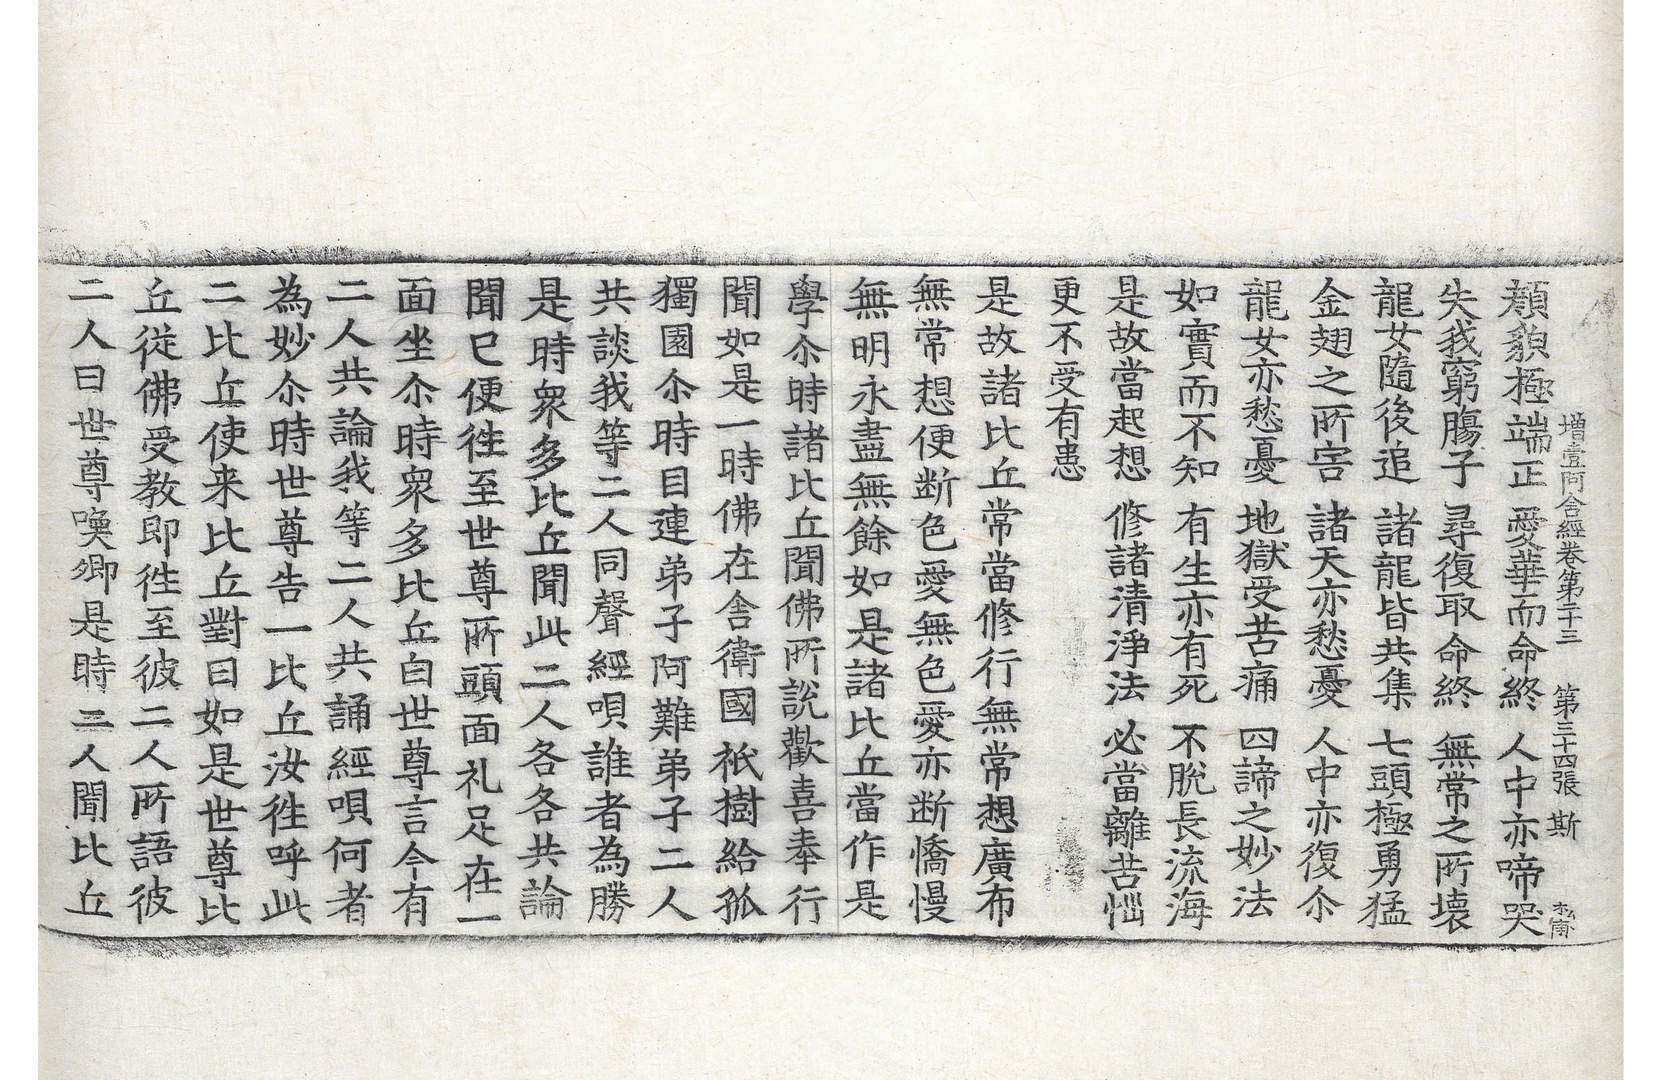 增壹阿含經卷第二十三　第三十四張　斯
顔貌極端正　愛華而命終　人中亦啼哭
失我窮膓子　尋復取命終　無常之所壞
龍女隨後追　諸龍皆共集　七頭極勇猛
金翅之所害　諸天亦愁憂　人中亦復尒
龍女亦愁憂　地獄受苦痛　四諦之妙法
如實而不知　有生亦有死　不脫長流海
是故當起想　修諸清淨法　必當離苦惱
更不受有患
是故諸比丘常當修行無常想廣布
無常想便断色愛無色愛亦断憍慢
無明永盡無餘如是諸比丘當作是
學尒時諸比丘聞佛所說歡喜奉行
聞如是一時佛在舍衛國祇樹給孤
獨園尒時目連弟子阿難弟子二人
共談我等二人同聲經唄誰者為勝
是時衆多比丘聞此二人各各共論
聞已便徃至世尊所頭面礼足在一
面坐尒時衆多比丘白世尊言今有
二人共論我等二人共誦經唄何者
為妙尒時世尊告一比丘汝徃呼此
二比丘使来比丘對曰如是世尊比
丘從佛受教即徃至彼二人所語彼
二人曰世尊喚卿是時二人聞比丘